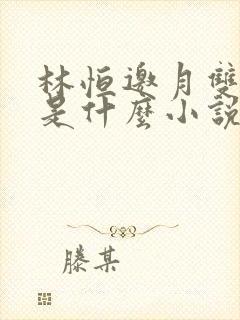 林恒邀月雙
是什麼小說
滕某